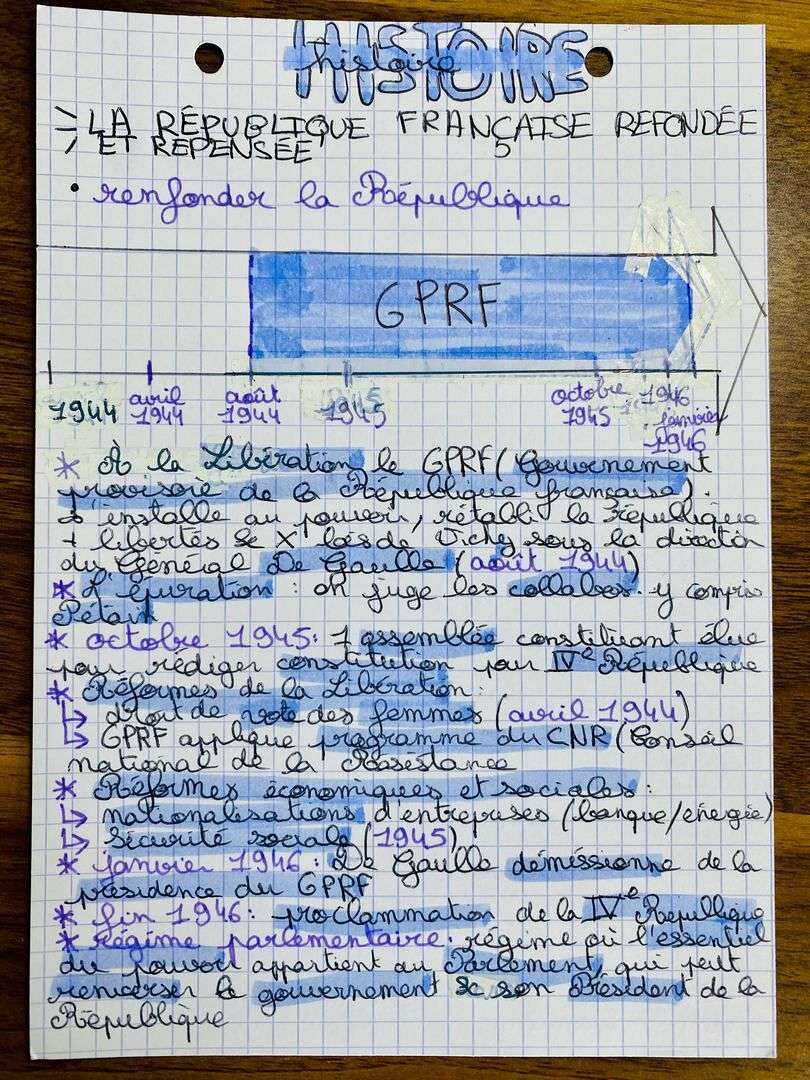 HISTOIRE
histoire
LA RÉPUBLIQUE FRANÇAISE REFONDÉE
ET REPENSÉE
• renfonder la République
GPRF
1944 avril 1944 août 1944 1945 octobre 1945 1946 janvier 1946
* À la Libération le GPRF (Gouvernement
provisoire de la République française).
s'installe au pouvoir, rétabli la république
+ libertés & X lois de Vichy sous la direction
du Général De Gaulle (août 1944)
* L'épuration : on juge les collabos. y compris
Pétain
* octobre 1945: 1 assemblée constituant élue
pour rédiger constitution pour IVe République
* Réformes de la Libération:
↳ droit de vote des femmes (avril 1944)
↳ GPRF applique programme du CNR (Conseil
national de la Résestance
* Réformes économiques et sociales:
↳ nationalisations d'entreprises (banque/énergie)
↳ Sécurité sociale (1945)
* janvier 1946: De Gaulle démissionne de la
présidence du GPRF
* fin 1946: proclammation de la IVe République
* régime parlementaire: régime où l'essentiel
du pouvoir appartient au Parlement, qui peut
renverser le gouvernement & son Président de la
République